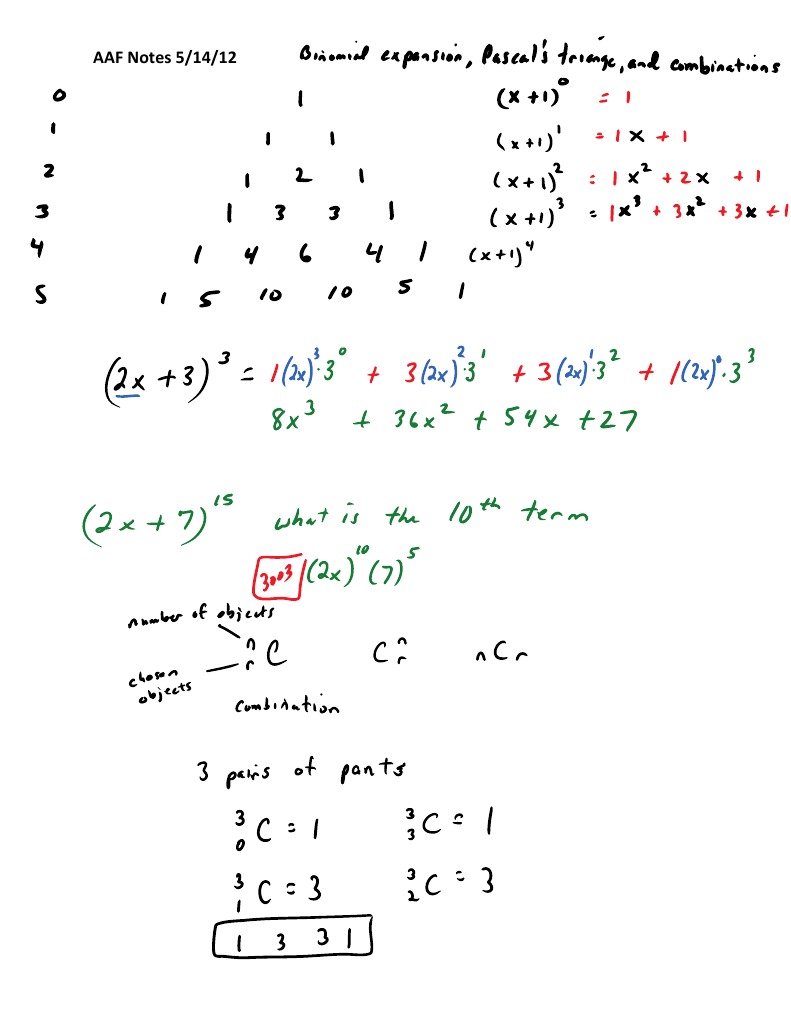 AAF Notes 5/14/12 Binomial expansion, Pascal's triange, and combinations
0 1 (x+1)^0 = 1
1 1 1 (x+1)^1 = 1x + 1
2 1 2 1 (x+1)^2 = 1x^2 + 2x + 1
3 1 3 3 1 (x+1)^3 = 1x^3 + 3x^2 + 3x + 1
4 1 4 6 4 1 (x+1)^4
5 1 5 10 10 5 1
(2x + 3)^3 = 1(2x)^3·3^0 + 3(2x)^2·3^1 + 3(2x)^1·3^2 + 1(2x)^0·3^3
8x^3 + 36x^2 + 54x + 27
(2x + 7)^15 what is the 10th term
3003 (2x)^10 (7)^5
number of objects
n r C C n r nCr
chosen
objects
Combination
3 pairs of pants
3 0 C = 1 3 3 C = 1
3 1 C = 3 3 2 C = 3
1 3 3 1